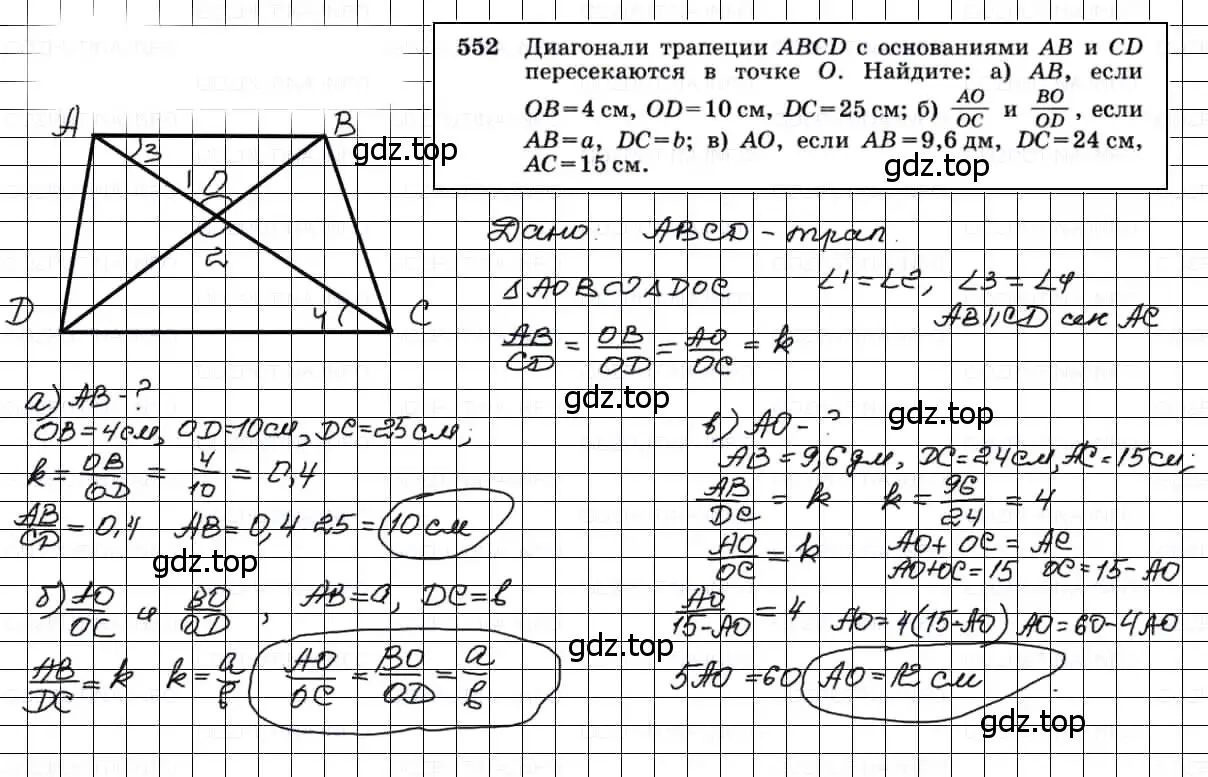 552 Диагонали трапеции ABCD с основаниями AB и CD
пересекаются в точке O. Найдите: а) AB, если
OB=4 см, OD=10 см, DC=25 см; б) AO/OC и BO/OD, если
AB=a, DC=b; в) AO, если AB=9,6 дм, DC=24 см,
AC=15 см.
gdz.top
A B
3
1 O
2
D 4 C
gdz.top
Дано: ABCD - трап.
△AOB ∽ △DOC ∠1=∠2, ∠3=∠4
AB||CD сек AC
AB/CD = OB/OD = AO/OC = k
gdz.top
gdz.top
а) AB-?
OB=4см, OD=10см, DC=25см;
k = OB/OD = 4/10 = 0,4
AB/CD = 0,4 AB = 0,4 25 = 10 см
gdz.top
б) AO/OC и BO/OD, AB=a, DC=b
AB/DC = k k = a/b AO/OC = BO/OD = a/b
gdz.top
в) AO-?
AB=9,6дм, DC=24см, AC=15см;
AB/DC = k k = 96/24 = 4
AO/OC = k AO+OC=AC
AO+OC=15 OC=15-AO
AO/15-AO = 4 AO=4(15-AO) AO=60-4AO
5AO=60 AO=12 см
gdz.top